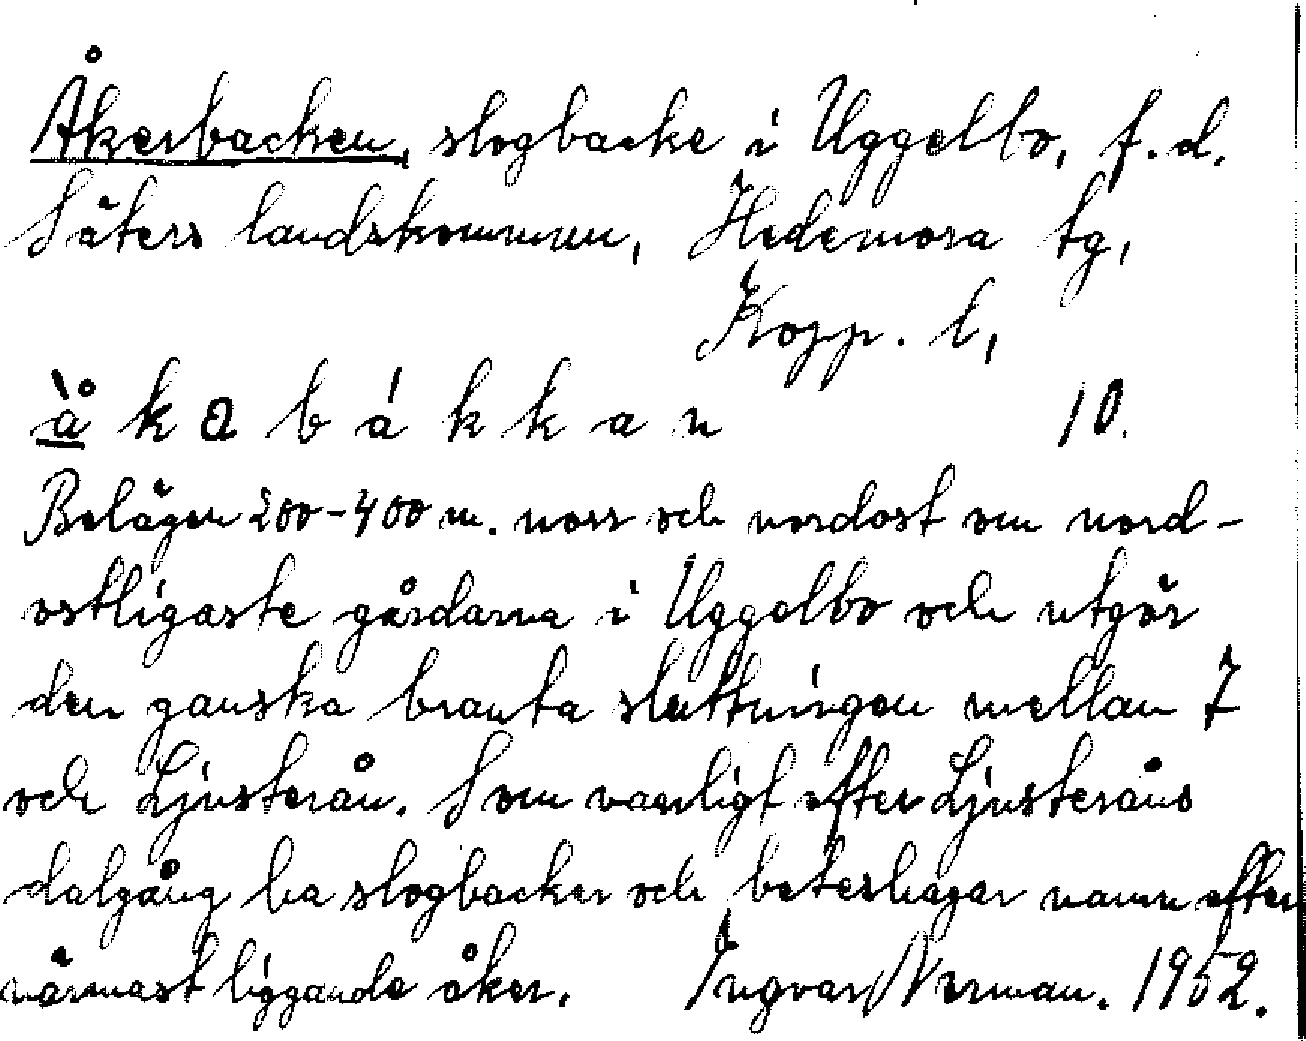 Åkerbacken, slogbacke i Uggelbo, f.d.
Säters landskommun, Hedemora tg,
Kopp. l,
å̀ k a b á k k a n 10.
Belägen 200-400 m. norr och nordost om nord-
ostligaste gårdarna i Uggelbo och utgör
den ganska branta sluttningen mellan 7
och Ljusterån. Som vanligt efter Ljusteråns
dalgång ha slogbacker och beteshagar namn efter
närmast liggande åker. Ingvar Norman. 1952.